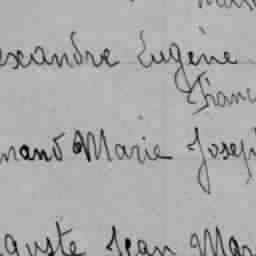 exandre Eugène
Franc
mand Marie Josep
guste Jean Mar